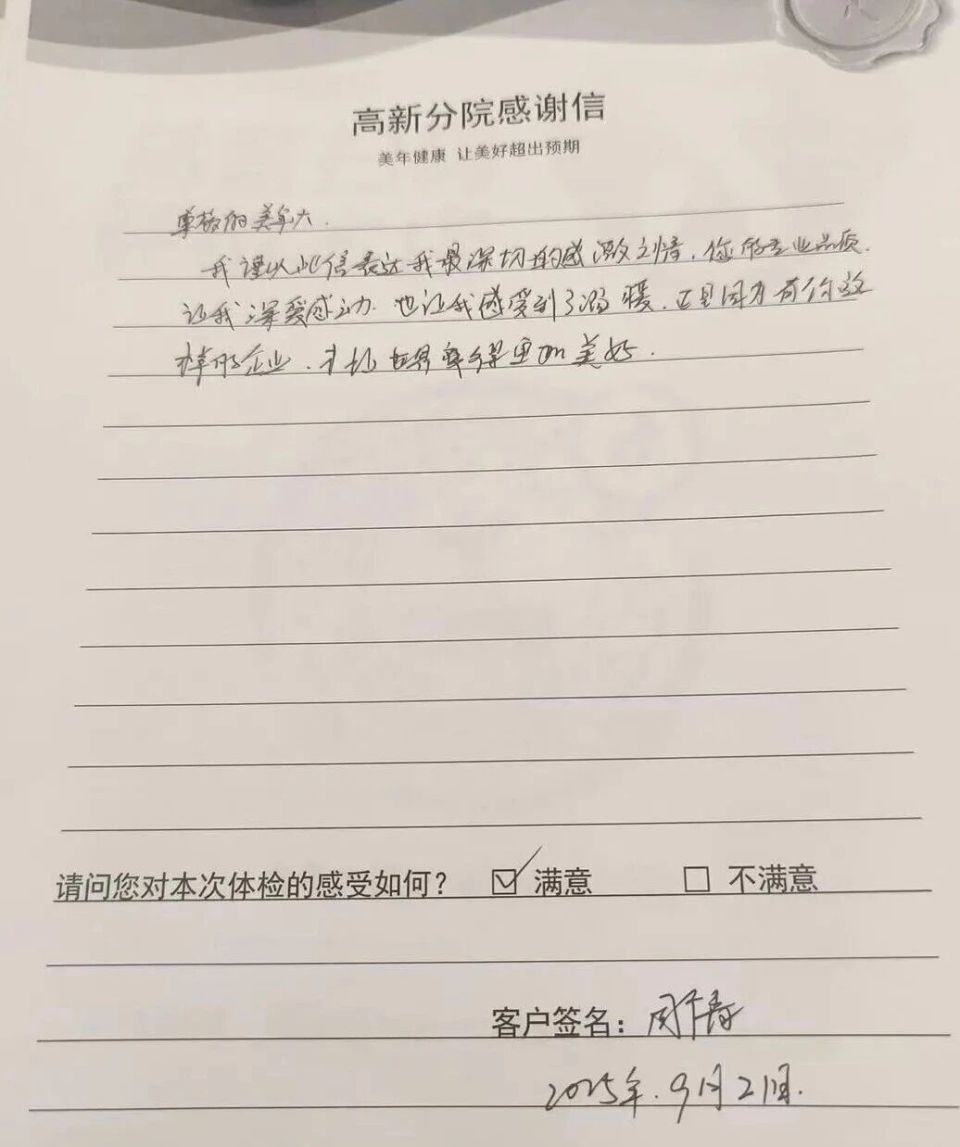 高新分院感谢信
美年健康 让美好超出预期
尊敬的美年大.
我谨以此信表达我最深切的感激之情，您的专业品质.
让我深爱感动. 也让我感受到了温暖. 正是因为有你这
样的企业. 才让世界变得更加美好.
请问您对本次体检的感受如何？ ☑ 满意 □ 不满意
客户签名：周
2025年.9月21日.